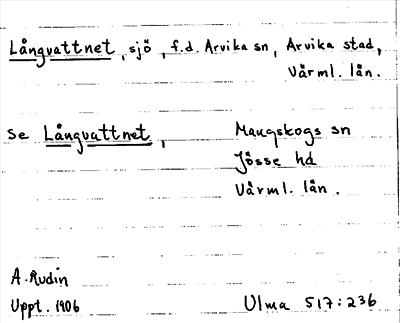 Långvattnet, sjö, f.d. Arvika sn, Arvika stad,
Värml. län.
se Långvattnet, Mangskogs sn
Jösse hd
Värml. län.
A. Rudin
Uppt. 1906
Ulma 517:236